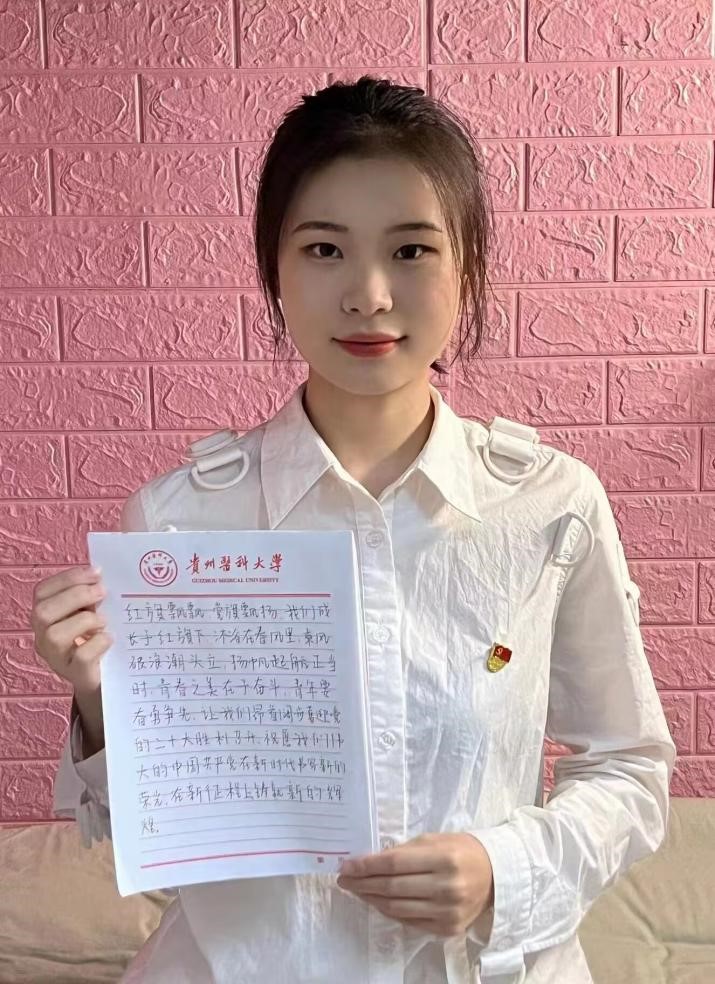 貴州醫科大學
GUIZHOU MEDICAL UNIVERSITY
红旗飘飘，党旗飘扬，我们成
长于红旗下，沐浴在春风里，乘风
破浪潮头立，扬帆起航正当
时，青春之美在于奋斗，青年要
奋勇争先，让我们昂首阔步喜迎党
的二十大胜利召开，祝愿我们伟
大的中国共产党在新时代书写新的
荣光，在新征程上铸就新的辉
煌。